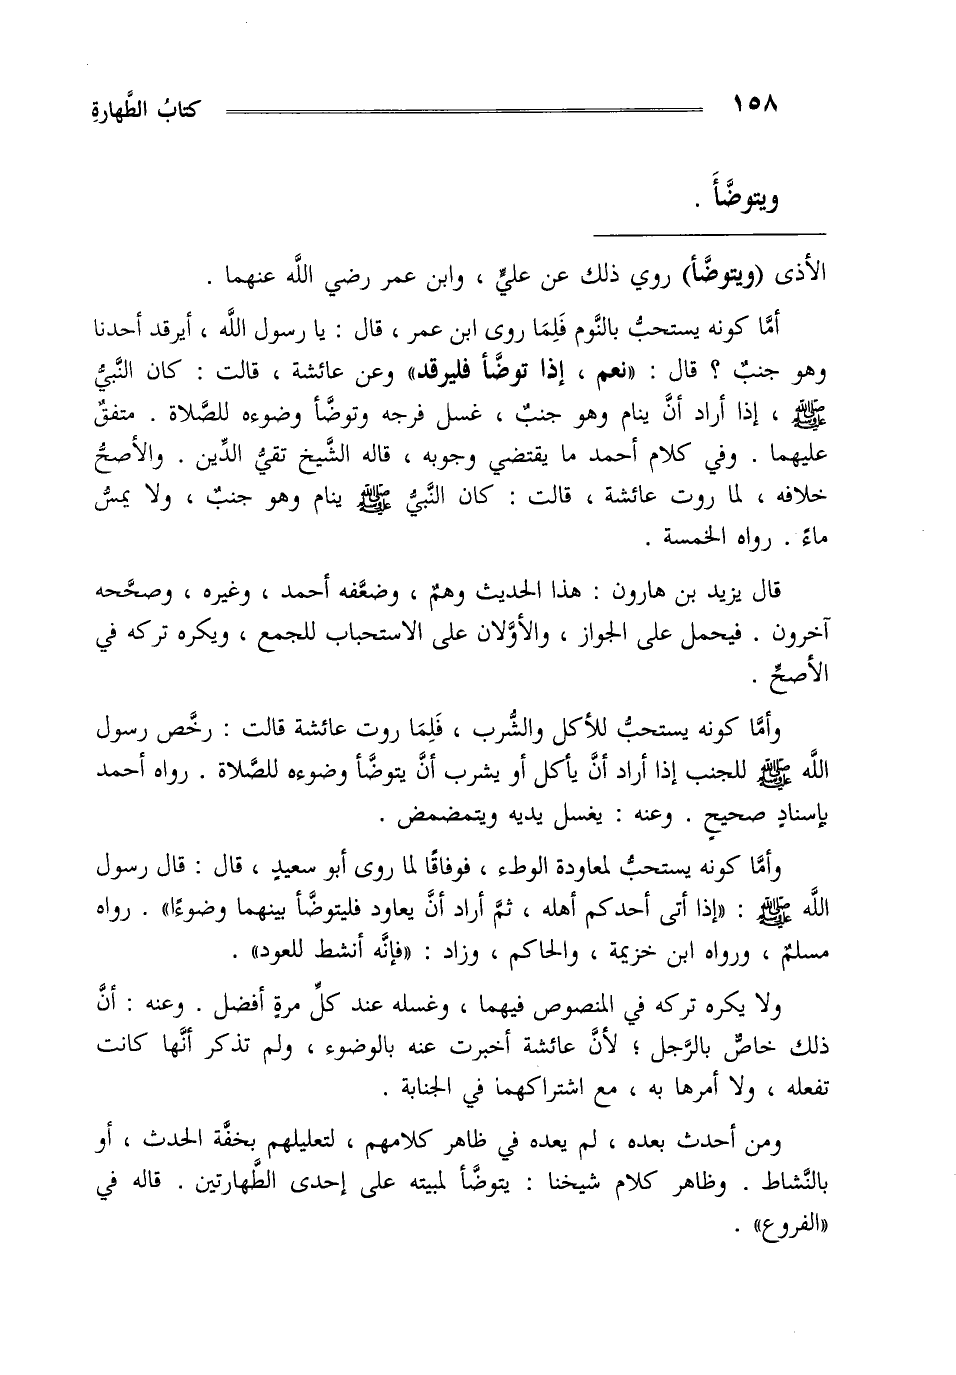 ١٥٨ كتابُ الطَّهارةِ
ويتوضَّأَ .
الأذى (ويتوضَّأ) روي ذلك عن عليٍّ ، وابن عمر رضي اللَّه عنهما .
أمَّا كونه يستحبُّ بالنَّوم فَلِمَا روى ابن عمر ، قال : يا رسول اللَّه ، أيرقد أحدنا
وهو جنبٌ ؟ قال : «نعم ، إذا توضَّأ فليرقد» وعن عائشة ، قالت : كان النَّبيُّ
ﷺ ، إذا أراد أنَّ ينام وهو جنبٌ ، غسل فرجه وتوضَّأ وضوءه للصَّلاة . متفقٌ
عليهما . وفي كلام أحمد ما يقتضي وجوبه ، قاله الشَّيخ تقيُّ الدِّين . والأصحُّ
خلافه ، لما روت عائشة ، قالت : كان النَّبيُّ ﷺ ينام وهو جنبٌ ، ولا يمسُّ
ماءً . رواه الخمسة .
قال يزيد بن هارون : هذا الحديث وهمٌ ، وضعَّفه أحمد ، وغيره ، وصحَّحه
آخرون . فيحمل على الجواز ، والأوَّلان على الاستحباب للجمع ، ويكره تركه في
الأصحِّ .
وأمَّا كونه يستحبُّ للأكل والشُّرب ، فَلِمَا روت عائشة قالت : رخَّص رسول
اللَّه ﷺ للجنب إذا أراد أنَّ يأكل أو يشرب أنَّ يتوضَّأ وضوءه للصَّلاة . رواه أحمد
بإسنادٍ صحيحٍ . وعنه : يغسل يديه ويتمضمض .
وأمَّا كونه يستحبُّ لمعاودة الوطء ، فوفاقًا لما روى أبو سعيدٍ ، قال : قال رسول
اللَّه ﷺ : «إذا أتى أحدكم أهله ، ثمَّ أراد أنَّ يعاود فليتوضَّأ بينهما وضوءًا» . رواه
مسلمٌ ، ورواه ابن خزيمة ، والحاكم ، وزاد : «فإنَّه أنشط للعود» .
ولا يكره تركه في المنصوص فيهما ، وغسله عند كلِّ مرةٍ أفضل . وعنه : أنَّ
ذلك خاصٌّ بالرَّجل ؛ لأنَّ عائشة أخبرت عنه بالوضوء ، ولم تذكر أنَّها كانت
تفعله ، ولا أمرها به ، مع اشتراكهما في الجنابة .
ومن أحدث بعده ، لم يعده في ظاهر كلامهم ، لتعليلهم بخفَّة الحدث ، أو
بالنَّشاط . وظاهر كلام شيخنا : يتوضَّأ لمبيته على إحدى الطَّهارتين . قاله في
«الفروع» .